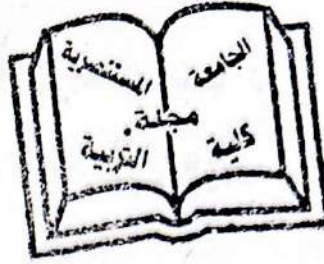 الجامعة المستنصرية
مجلة
كلية التربية